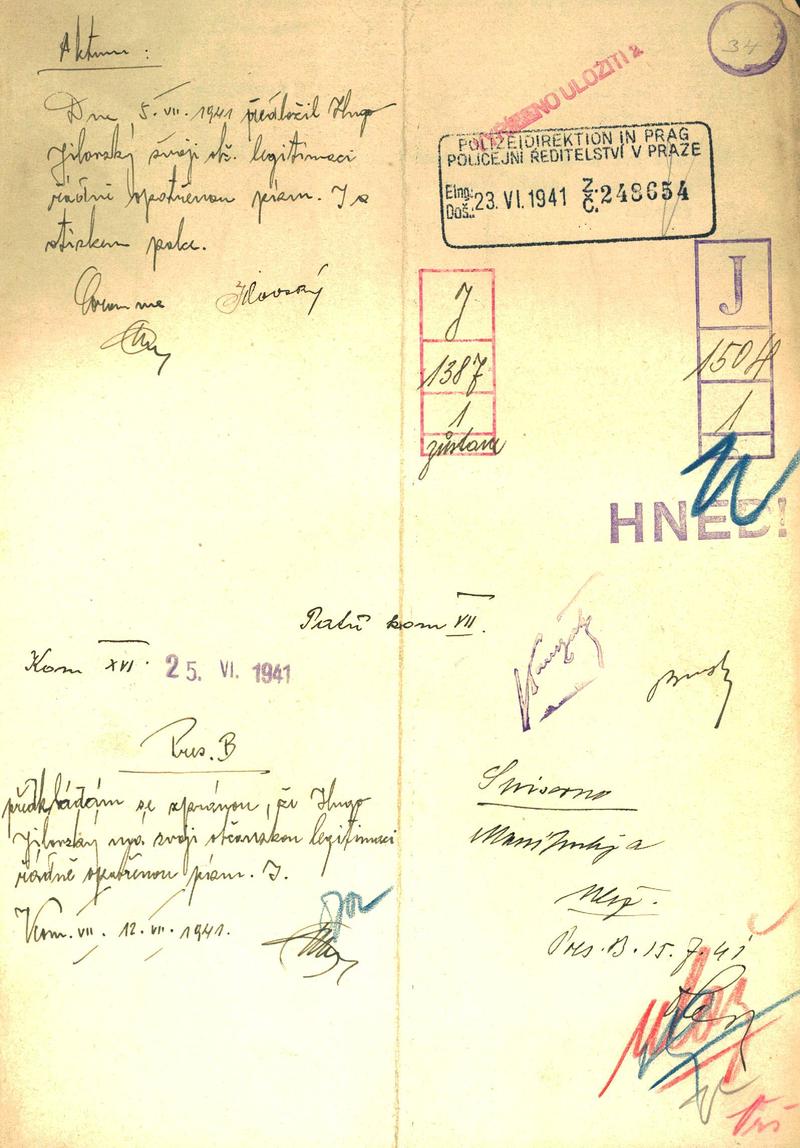 34
Aktum:
Dne 5. VII. 1941 předložil Hugo
Jilovský svoji obč. legitimaci
řádně opatřenou písm. J a
otiskem palce.
Jilovský
ULOŽITI
POLIZEIDIREKTION IN PRAG
POLICEJNÍ ŘEDITELSTVÍ V PRAZE
Eing.: Doš.: 23. VI. 1941 Z. Č. 248654
J
1387
1
zůstane
J
1504
1
HNED!
Patří kom VII.
Kom XVI. 25. VI. 1941
Pres. B
předkládám se zprávou, že Hugo
Jilovský má svoji občanskou legitimaci
řádně opatřenou písm. J.
Kom. VII. 12. VII. 1941.
Pres. B. 15. 7. 41